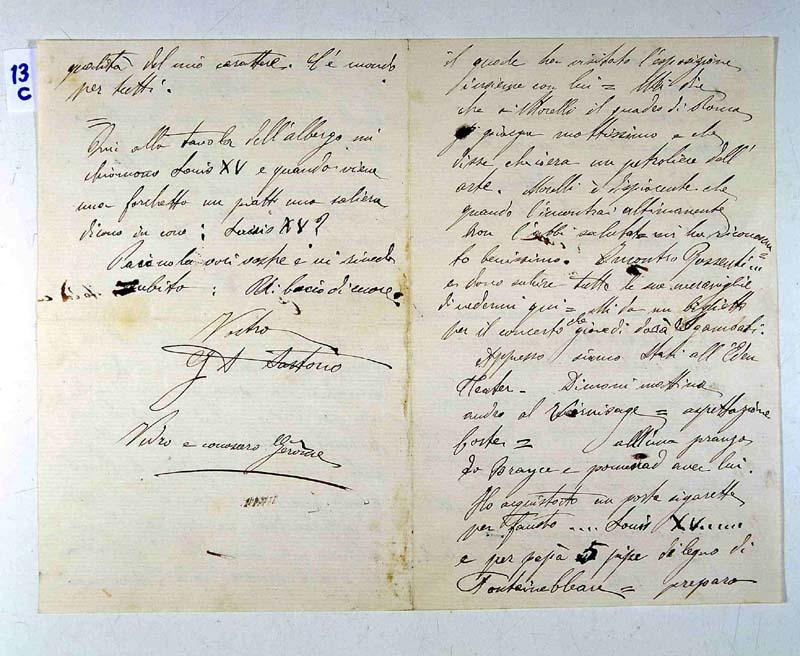 13
C
qualità del mio carattere. C'è mondo
per tutti.
=
Qui alla tavola dell'albergo mi
chiamano Louis XV e quando viene
una forchetta un piatto una saliera
dicono in coro : Louis XV?
nuove vostre e vi rivedo
subito : Vi bacio di cuore
Vostro
G A Sartorio
Vedrò e conoscerò Gerôme
il quale ha visitato l'esposizione
insieme con lui = Mi dice
che a Morelli il quadro di Roma
moltissimo e che
disse che era un petroliere dell'
arte. Morelli è che
quando l'incontrai ultimamente
non l'ebbi salutato mi ha riconosciu=
to benissimo. Incontro
e dono subire tutte le sue meraviglie
di vedermi qui = Mi dà un biglietto
per il concerto che giovedì darà Sgambati.
Appresso siamo stati all'Eden
Teater - Dimani mattina
andrò al Vernisage = aspettazione
forte = all'una pranzo
da Brayce e avec lui.
Ho acquistato un porta sigarette
per Fausto .... Louis XV......
e per papà 5 pipe di legno di
Fontainebleau = preparo